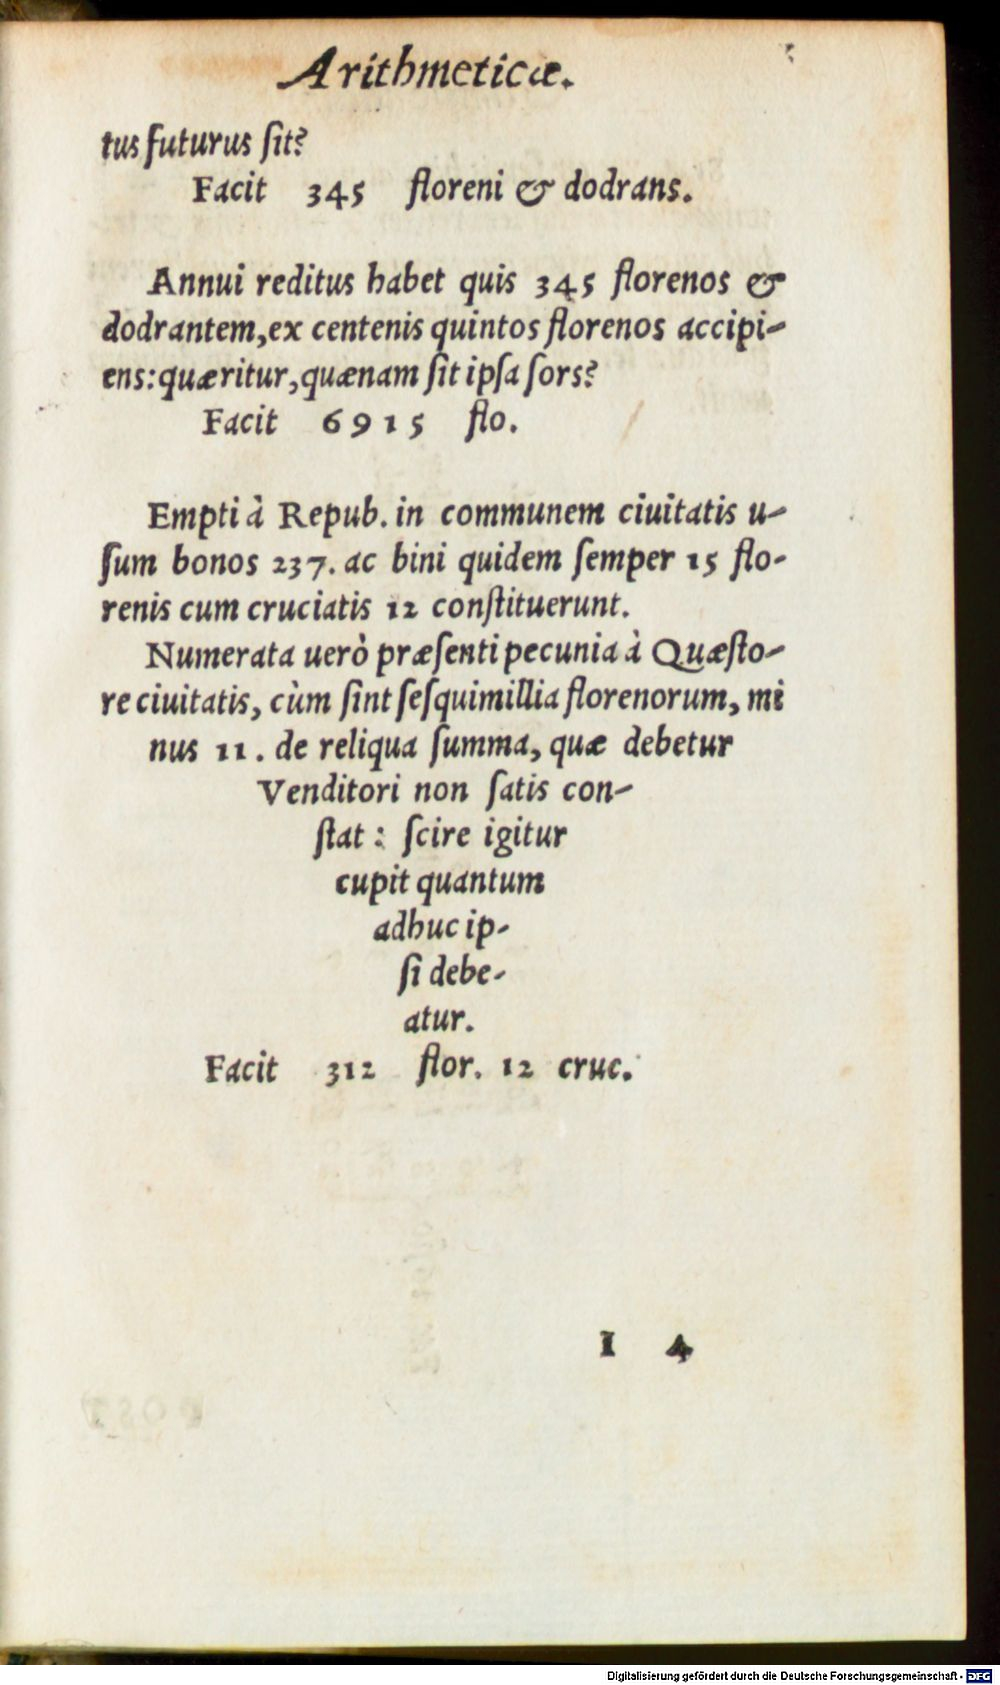 Arithmeticæ.
tus futurus ſit?
Facit 345 floreni & dodrans.
Annui reditus habet quis 345 florenos &
dodrantem, ex centenis quintos florenos accipi-
ens: quæritur, quænam ſit ipſa ſors?
Facit 6915 flo.
Empti à Repub. in communem ciuitatis u-
ſum bonos 237. ac bini quidem ſemper 15 flo-
renis cum cruciatis 12 conſtituerunt.
Numerata uerò præſenti pecunia à Quæſto-
re ciuitatis, cùm ſint ſeſquimillia florenorum, mi
nus 11. de reliqua ſumma, quæ debetur
Venditori non ſatis con-
ſtat: ſcire igitur
cupit quantum
adhuc ip-
ſi debe-
atur.
Facit 312 flor. 12 cruc.
I 4
Digitalisierung gefördert durch die Deutsche Forschungsgemeinschaft - DFG